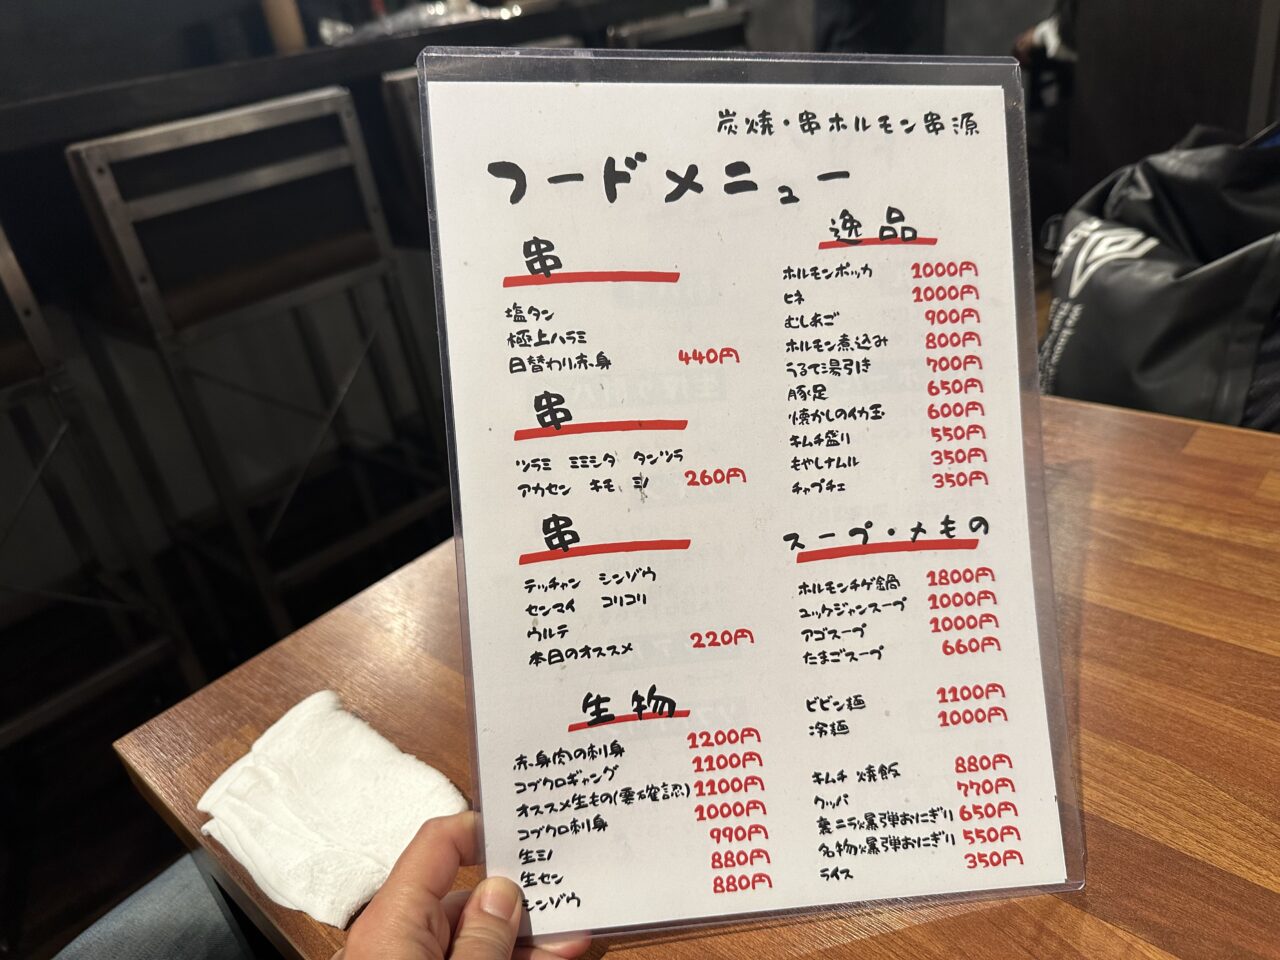 炭焼・串ホルモン串源
フードメニュー
串
塩タン
極上ハラミ
日替わり赤身 440円
串
ツラミ ミミシタ タンツラ
アカセン キモ ミノ 260円
串
テッチャン シンゾウ
センマイ コリコリ
ウルテ
本日のオススメ 220円
生物
赤身肉の刺身 1200円
コブクロギャング 1100円
オススメ生もの(要確認) 1100円
コブクロ刺身 1000円
生ミノ 990円
生セン 880円
シンゾウ 880円
逸品
ホルモンポッカ 1000円
ヒネ 1000円
むしあご 900円
ホルモン煮込み 800円
うるて湯引き 700円
豚足 650円
懐かしのイカ玉 600円
キムチ盛り 550円
もやしナムル 350円
チャプチェ 350円
スープ・〆もの
ホルモンチゲ鍋 1800円
ユッケジャンスープ 1000円
アゴスープ 1000円
たまごスープ 660円
ビビン麺 1100円
冷麺 1000円
キムチ焼飯 880円
クッパ 770円
裏ニラ爆弾おにぎり 650円
名物爆弾おにぎり 550円
ライス 350円